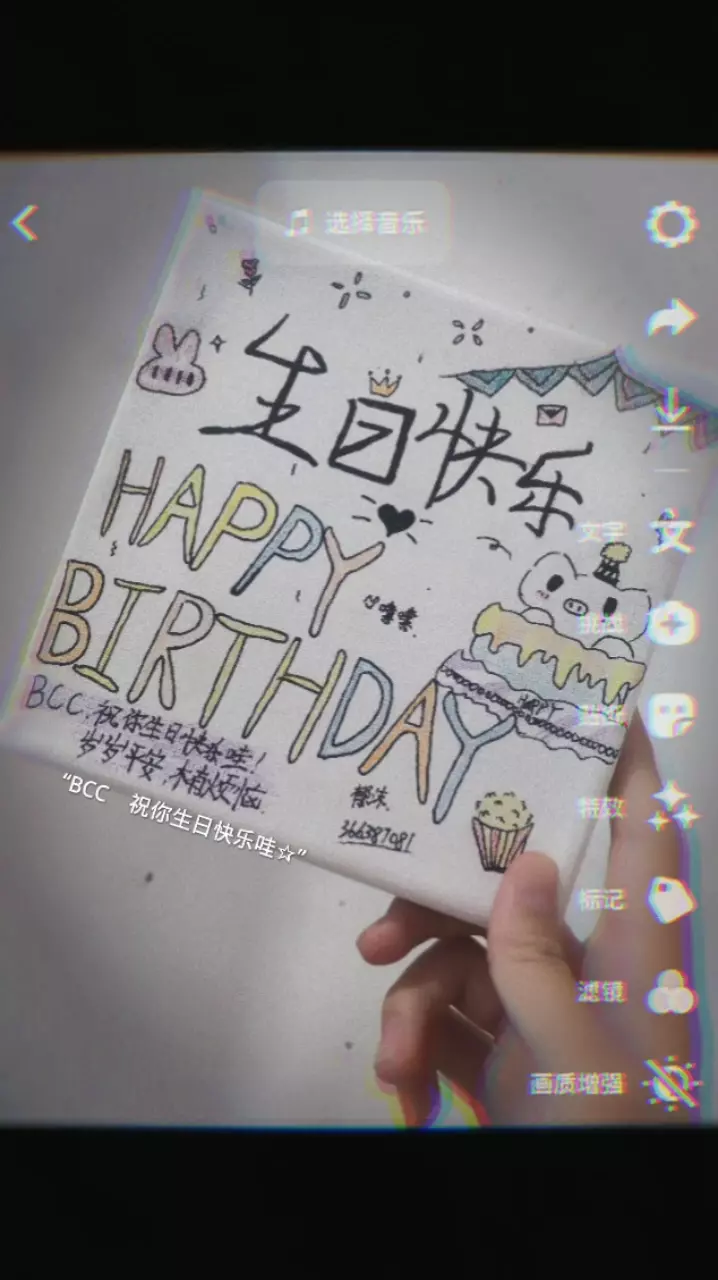 选择音乐
生日快乐
HAPPY
BIRTHDAY
嘿嘿
HAPPY
BCC.祝你生日快乐哇!
岁岁平安,木有烦恼
366387081
“BCC 祝你生日快乐哇☆”
文字
挑战
贴纸
特效
标记
滤镜
画质增强